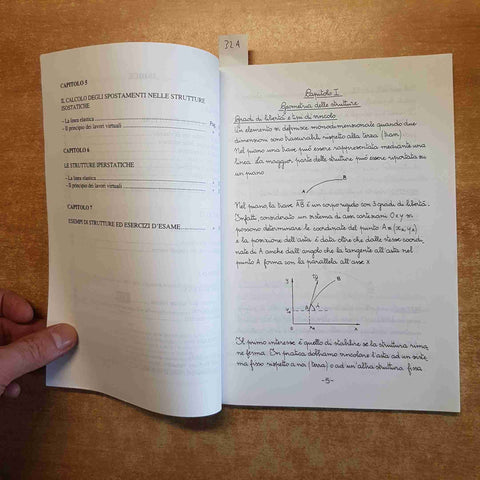 32A
CAPITOLO 5
IL CALCOLO DEGLI SPOSTAMENTI NELLE STRUTTURE
ISOSTATICHE
- La linea elastica
- Il principio dei lavori virtuali
Pag.
CAPITOLO 6
LE STRUTTURE IPERSTATICHE
- La linea elastica
- Il principio dei lavori virtuali
CAPITOLO 7
ESEMPI DI STRUTTURE ED ESERCIZI D'ESAME
Capitolo I
Geometria delle strutture
Gradi di libertà e tipi di vincolo
Un elemento si definisce monodimensionale quando due
dimensioni sono trascurabili rispetto alla terza (trave).
Nel piano una trave può essere rappresentata mediante una
linea. La maggior parte delle strutture può essere riportata su
un piano
A
B
Nel piano, la trave AB è un corpo rigido con 3 gradi di libertà.
Infatti considerato un sistema di assi cartesiani Oxy si
possono determinare le coordinate del punto A≡(xA, yA)
e la posizione dell'asta è data oltre che dalle stesse coordi_
nate di A anche dall'angolo che la tangente all'asta nel
punto A forma con la parallela all'asse x
y
B
A
yA
O
xA
x
Il primo interesse è quello di stabilire se la struttura rima_
ne ferma. In pratica dobbiamo vincolare l'asta ad un siste_
ma fisso rispetto a noi (terra) o ad un'altra struttura fissa
-5-